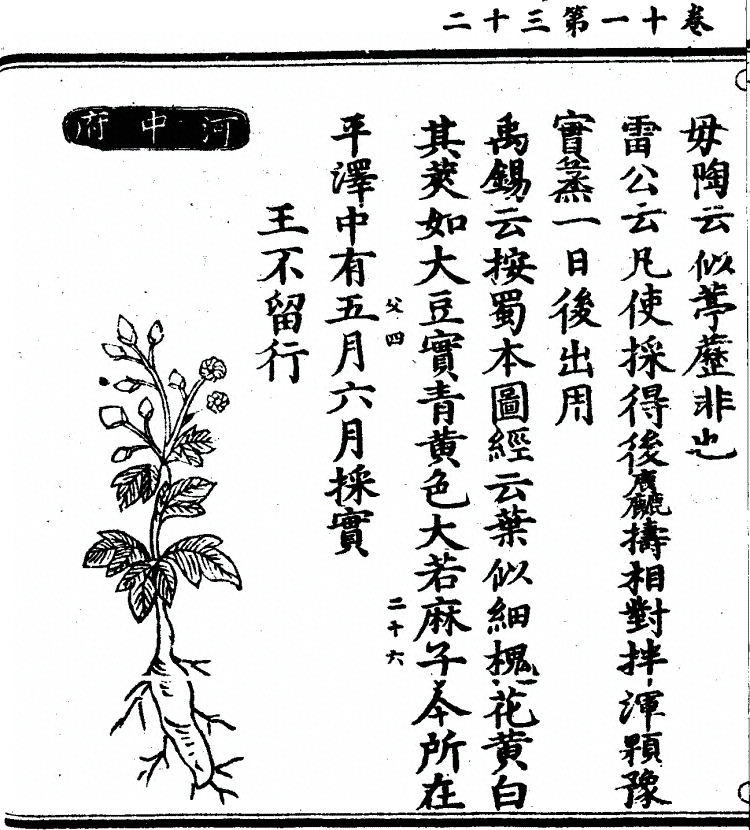 卷十一第三十二
毋陶云似葶藶非也
雷公云凡使採得後麤擣相對拌渾顆豫
實蒸一日後出用
禹錫云按蜀本圖經云葉似細槐花黃白
其莢如大豆實青黃色大若麻子夲所在
父四
二十六
平澤中有五月六月採實
王不留行
河中府